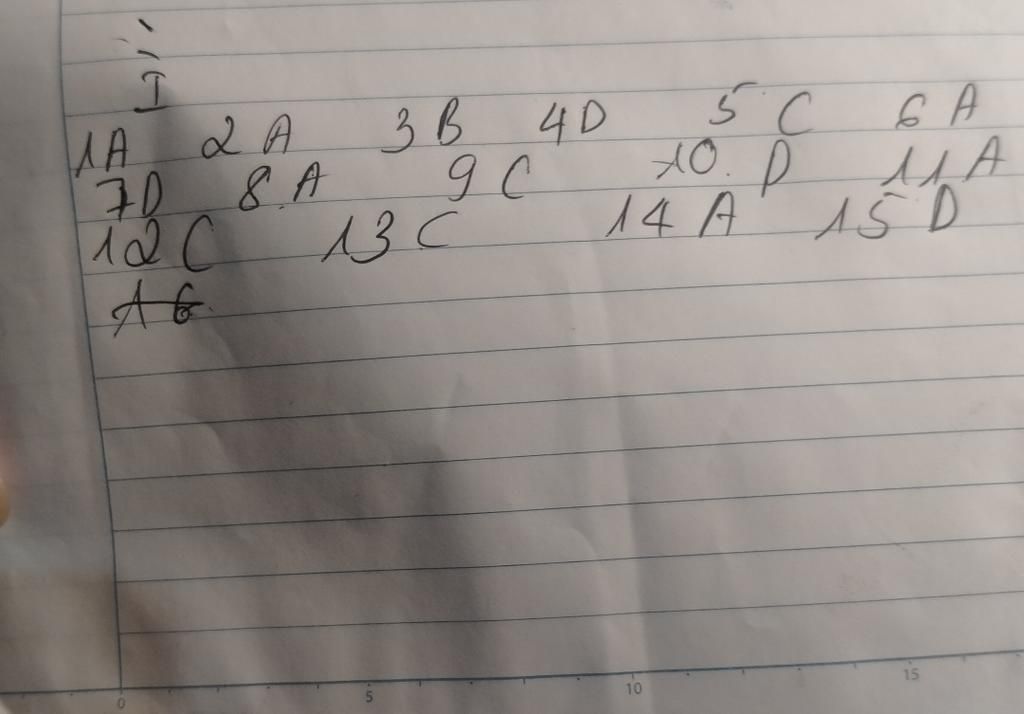 I
1A 2A 3B 4D 5 C 6 A
7D 8.A 9 C 10. D 11A
12C 13C 14A 15 D
0 5 10 15